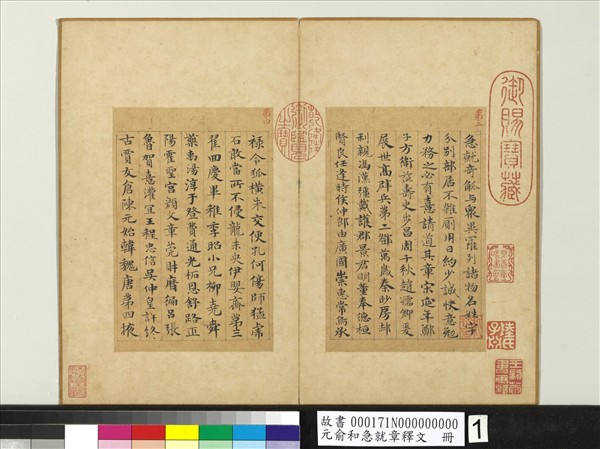 御賜寶藏
急就奇觚与眾異羅列諸物名姓字
分別部居不雜廁用日約少誠快意勉
力務之必有憙請道其章宋延年鄭
子方衛益壽史步昌周千秋趙孺卿爰
展世高辟兵第二鄧萬歲秦眇房郝
利親馮漢彊戴護郡景君明董奉德桓
賢良任逢時侯仲郎由廣國榮惠常烏承
祿令狐橫朱交便孔何傷師猛虎
石敢當所不侵龍未央伊嬰齊第三
翟回慶畢稚季昭小兄柳堯舜
藥禹湯淳于登費通光柘恩舒路正
陽霍聖宮顏文章莞財曆徧呂張
魯賀憙灌宜王程忠信吳仲皇許終
古賈友倉陳元始韓魏唐第四掖
故書 000171N000000000
元俞和急就章釋文 冊
1